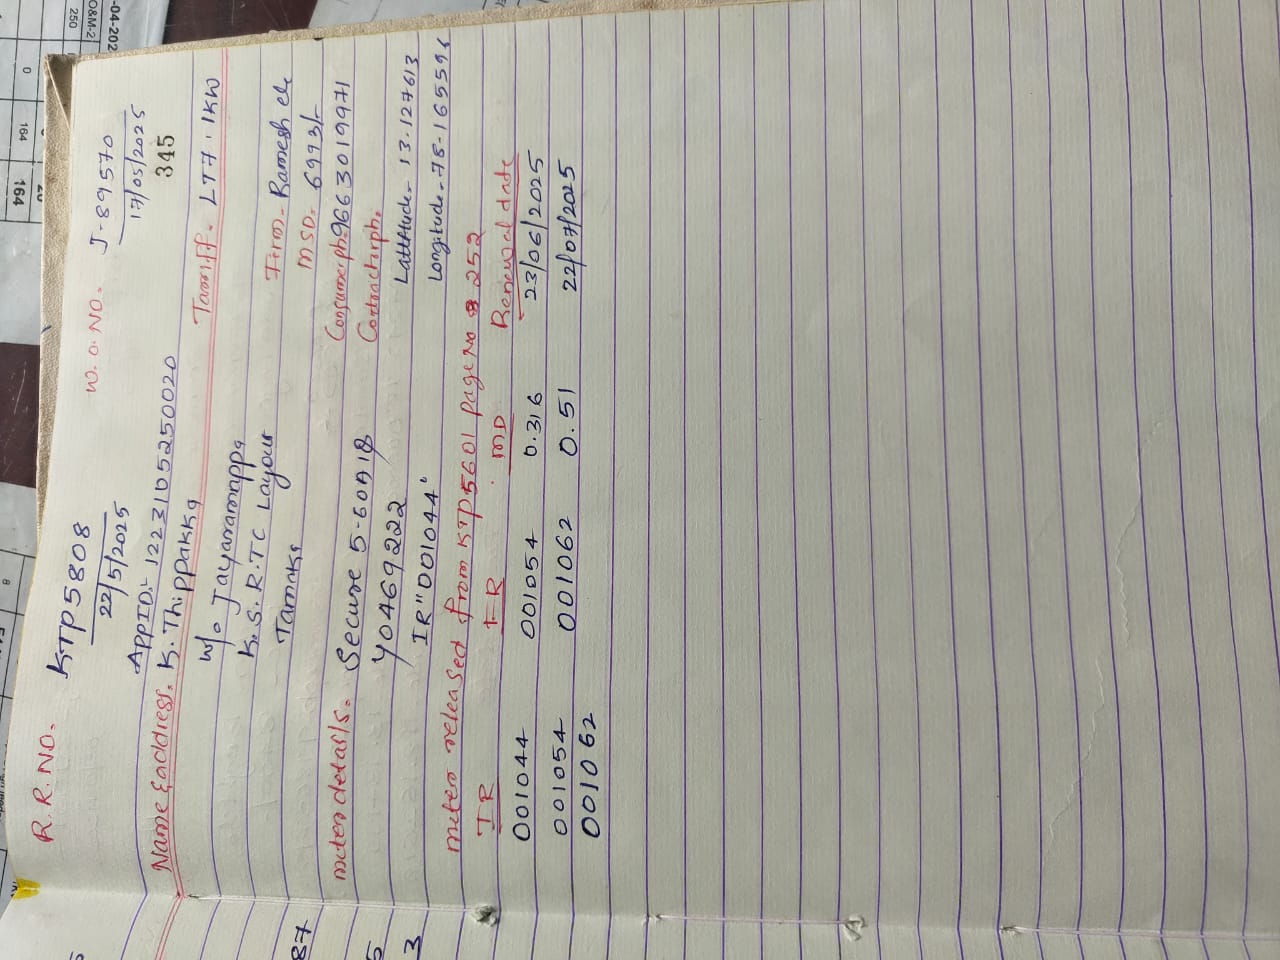 R.R.NO. KTP5808 W.O.NO. J-89570
22/5/2025 17/05/2025
AppID:- 1223105250020 345
Name & address. K. Thippakka Tariff. LT7. 1KW
W/o Jayaramappa
K.S.R.TC Layout Firm. Ramesh ele
Tamaka MSD. 6993/-
meter details. Secure 5-60A1Φ Consumerph. 9663019971
Y0469222 Contractorph.
IR"001044" Lattitude. 13.127613
Longitude. 78.165596
meter released from KTP5601 page No 252
IR FR MD Renewal date
001044 001054 0.316 23/06/2025
001054 001062 0.51 22/07/2025
001062
-04-202
O&M-2
250
0
164
164
87
5
3